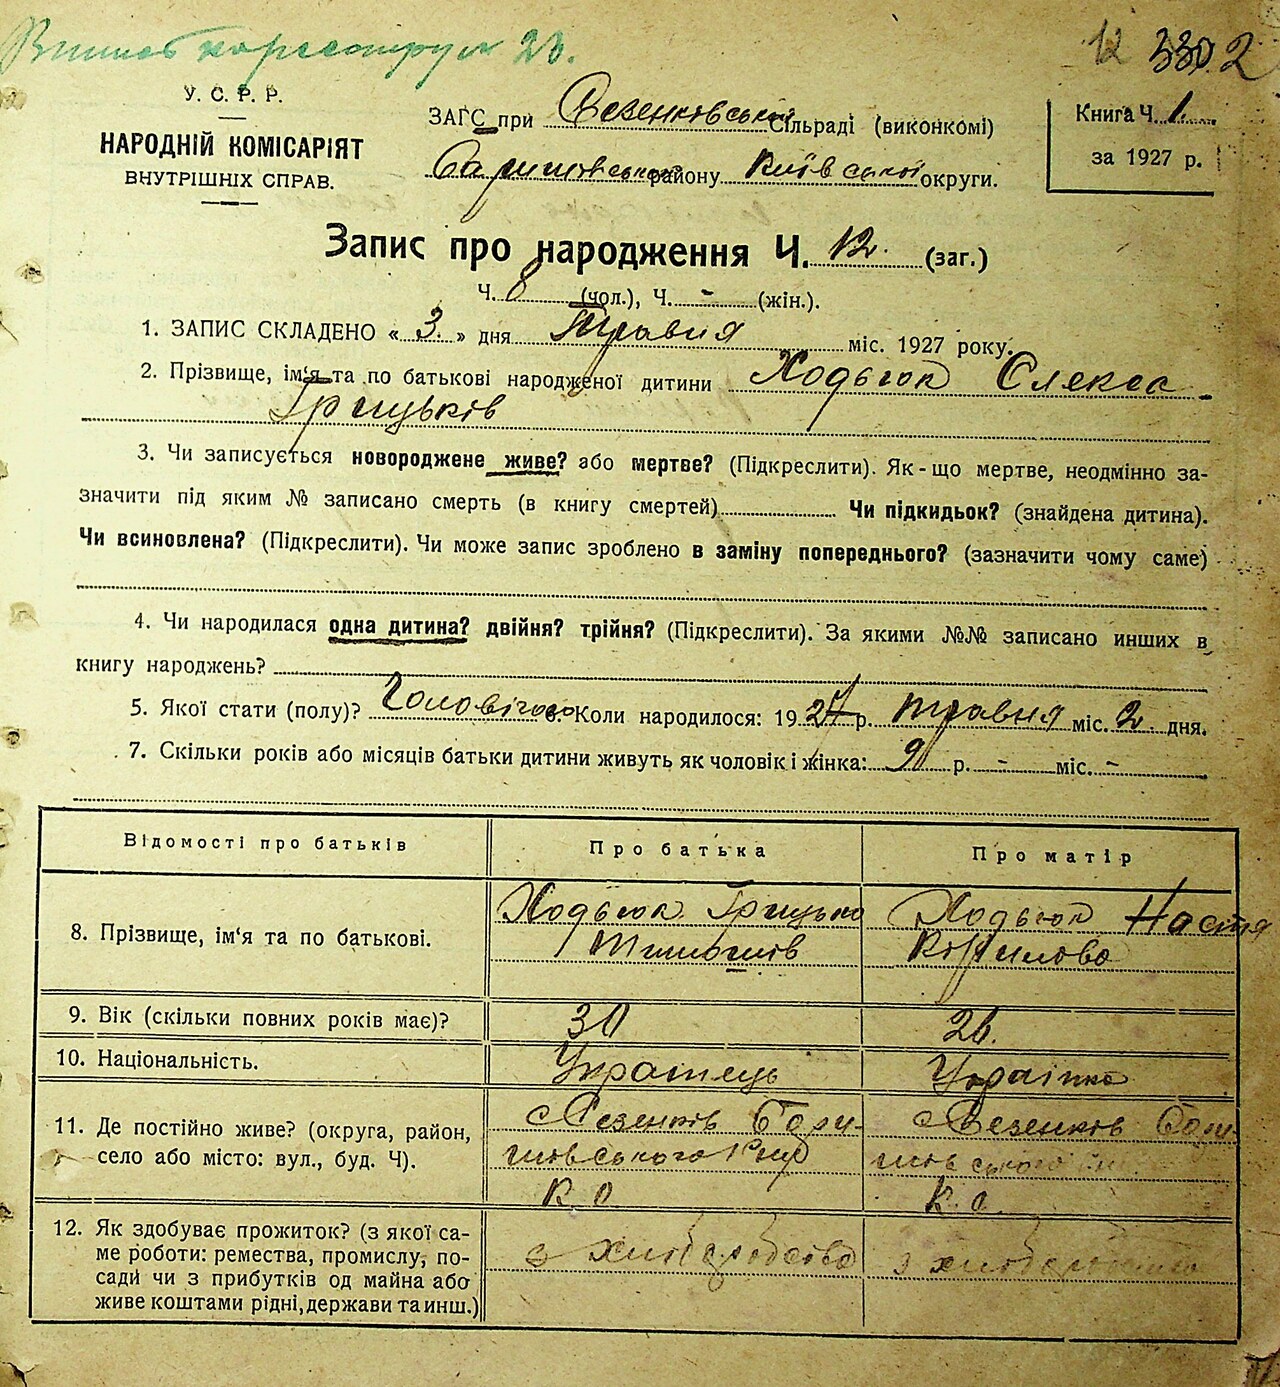 12 330. 2
У. С. Р. Р.
НАРОДНІЙ КОМІСАРІЯТ
ВНУТРІШНІХ СПРАВ.
ЗАГС при Безенковській Сільраді (виконкомі)
Баришовського району Київської округи.
Книга Ч. 1.
за 1927 р.
Запис про народження Ч. 12. (заг.)
Ч. 8 (чол.), Ч. - (жін.).
1. ЗАПИС СКЛАДЕНО « 3. » дня Травня міс. 1927 року.
2. Прізвище, ім‘я та по батькові народженої дитини Ходьгок Олекса
Грицьків
3. Чи записується новороджене живе? або мертве? (Підкреслити). Як-що мертве, неодмінно за-
значити під яким № записано смерть (в книгу смертей) Чи підкидьок? (знайдена дитина).
Чи всиновлена? (Підкреслити). Чи може запис зроблено в заміну попереднього? (зазначити чому саме)
4. Чи народилася одна дитина? двійня? трійня? (Підкреслити). За якими №№ записано инших в
книгу народжень?
5. Якої стати (полу)? Чоловічого 6. Коли народилося: 1927 р. травня міс. 2 дня.
7. Скільки років або місяців батьки дитини живуть як чоловік і жінка: 9 р. - міс. -
Відомості про батьків
Про батька
Про матір
8. Прізвище, ім‘я та по батькові.
Ходьгок Грицько
Ходьгок Настя
Корнилова
9. Вік (скільки повних років має)?
30
26.
10. Національність.
Українець
Українка
11. Де постійно живе? (округа, район,
село або місто: вул., буд. Ч).
с Безенків Бари-
шовського
К. О.
с Безенків Бари-
шовського
К. О.
12. Як здобуває прожиток? (з якої са-
ме роботи: ремества, промислу, по-
сади чи з прибутків од майна або
живе коштами рідні, держави та инш.)
з хліборобства
з хліборобства